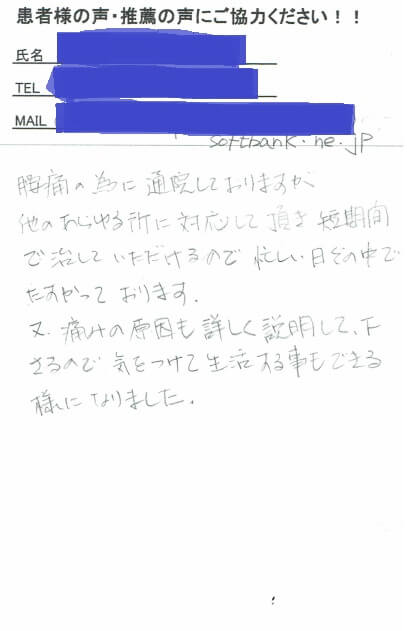 患者様の声・推薦の声にご協力ください！！
氏名
TEL
MAIL
softbank.ne.jp
腰痛の為に通院しておりますが
他のあらゆる所に対応して頂き短期間
で治していただけるので忙しい日々の中で
たすかっております。
又、痛みの原因も詳しく説明して、下
さるので気をつけて生活する事もできる
様になりました。